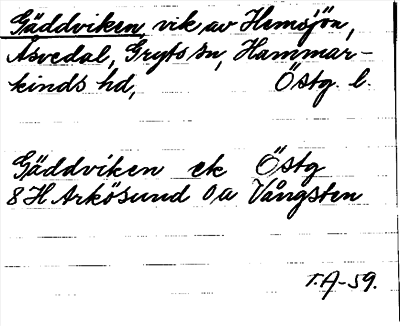 Gäddviken, vik av Hemsjön,
Åsvedal, Gryts sn, Hammar-
kinds hd, Östg. l.
Gäddviken ek Östg
8H Arkösund 0a Vångsten
T.A-59.